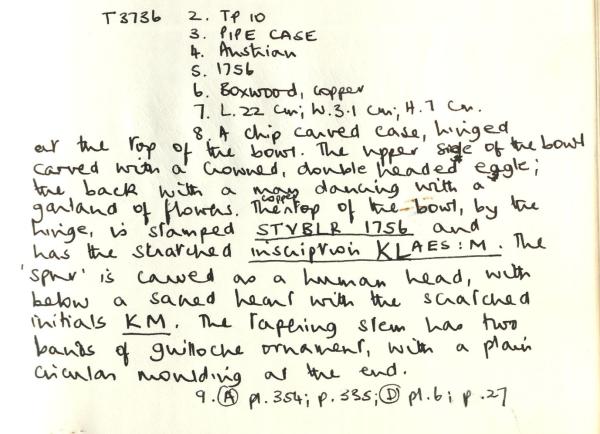 T3736 2. TP 10
3. PIPE CASE
4. Austrian
5. 1756
6. Boxwood, copper
7. L.22 cm; W.3.1 cm; H.7 cm.
8. A chip carved case, hinged
at the top of the bowl. The upper side of the bowl
carved with a crowned, double headed eagle;
the back with a man dancing with a
garland of flowers. The copper top of the bowl, by the
hinge, is stamped STVBLR 1756 and
has the scratched inscription KLAES:M. The
'spur' is carved as a human head, with
below a sacred heart with the scratched
initials KM. The tapering stem has two
bands of guilloche ornament, with a plain
circular moulding at the end.
9. (A) pl.354; p.335; (D) pl.6; p.27